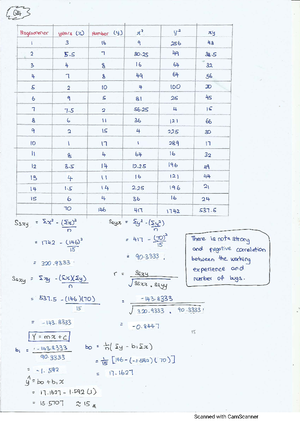 Programmer years (x) number (y) x² y² xy
1 3 16 9 256 48
2 5.5 7 30.25 49 38.5
3 4 8 16 64 32
4 7 8 49 64 56
5 2 10 4 100 20
6 9 5 81 25 45
7 7.5 2 56.25 4 15
8 6 11 36 121 66
9 2 15 4 225 30
10 1 17 1 289 17
11 8 4 64 16 32
12 3.5 14 12.25 196 49
13 4 11 16 121 44
14 1.5 14 2.25 196 21
15 6 4 36 16 24
70 146 417 1742 537.5
= 1742 - (146)²
15
= 320.9333
= 417 - (70)²
15
= 90.3333
There is
strong
and negative correlation
between the working
experience and
number of bugs.
= 537.5 - (146)(70)
15
= -143.8333
Y = mx + c
r =
= -143.8333
√320.9333 . 90.3333
= -0.8447
b₁ = -143.8333
90.3333
= -1.592
b₀ = 1/n (Σy - b₁Σx)
= 1/15 [146 - (-1.592)(70)]
= 17.1627
ŷ = b₀ + b₁x
= 17.1627 - 1.592 (1)
= 15.5707 ≈ 15
Scanned with CamScanner